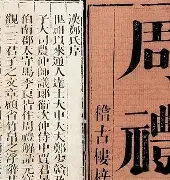 周禮
稽古樓梓
漢鄭氏序
世祖以來通人達士大中大夫鄭少贛
子大司農仲師議郎衛次仲侍中賈君景
伯南郡太守馬季長皆作周禮解詁
觀二三君子之文章顧省竹帛之浮辭